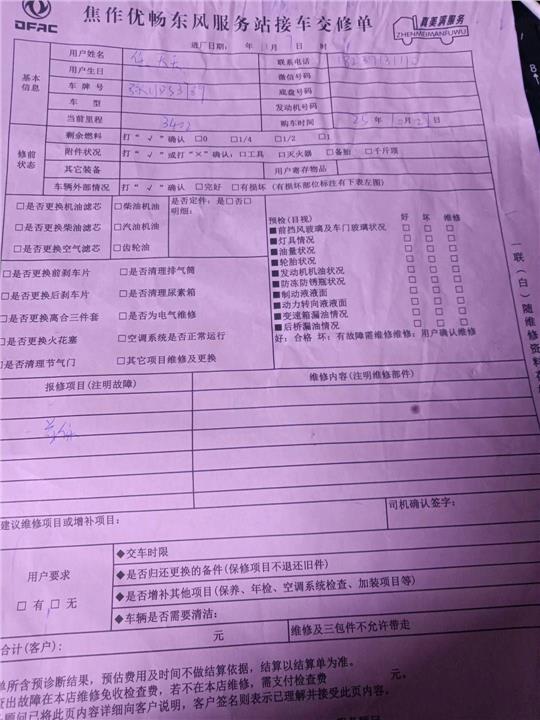 DFAC
焦作优畅东风服务站接车交修单
真美满服务
ZHENMEIMANFUWU
进厂日期: 年 月 日 时
基本信息
用户姓名
联系电话
用户生日
微信号码
车牌号
底盘号码
车型
发动机号码
当前里程
购车时间 25年 月 日
修前状态
剩余燃料 打“√”确认 □0 □1/4 □1/2 □1
附件状况 打“√”或打“×”确认:□工具 □灭火器 □备胎 □千斤顶
其它装备
用户寄存物品
车辆外部情况 打“√”确认 □完好 □有损坏(有损坏部位标注有下表左图)
□是否更换机油滤芯 □柴油机油
□是否更换柴油滤芯 □汽油机油
□是否更换空气滤芯 □齿轮油
是否定件:是□否□
明细:
□是否更换前刹车片 □是否清理排气筒
□是否更换后刹车片 □是否清理尿素箱
□是否更换离合三件套 □是否为电气维修
□是否更换火花塞 □空调系统是否正常运行
□是否清理节气门 □其它项目维修及更换
预检(目视) 好 坏 维修
■前挡风玻璃及车门玻璃状况 □ □ □
■灯具情况 □ □ □
■油量状况 □ □ □
■轮胎状况 □ □ □
■发动机机油状况 □ □ □
■防冻防锈瓶状况 □ □ □
■制动液液面 □ □ □
■动力转向液液面 □ □ □
■变速箱漏油情况 □ □ □
■后桥漏油情况 □ □ □
好:合格 坏:有故障需维修维修:用户确认维修
一联(白)随维修资料
报修项目(注明故障)
维修内容(注明维修部件)
首保
建议维修项目或增补项目:
司机确认签字:
用户要求
□有 □无
◆交车时限
◆是否归还更换的备件(保修项目不退还旧件)
◆是否增补其他项目(保养、年检、空调系统检查、加装项目等)
◆车辆是否需要清洁:
合计(客户): 元
维修及三包件不允许带走
单所含预诊断结果,预估费用及时间不做结算依据,结算以结算单为准。
查出故障在本店维修免收检查费,若不在本店维修,需支付检查费 元,
顾问已将此页内容详细向客户说明,客户签名则表示已理解并接受此页内容。